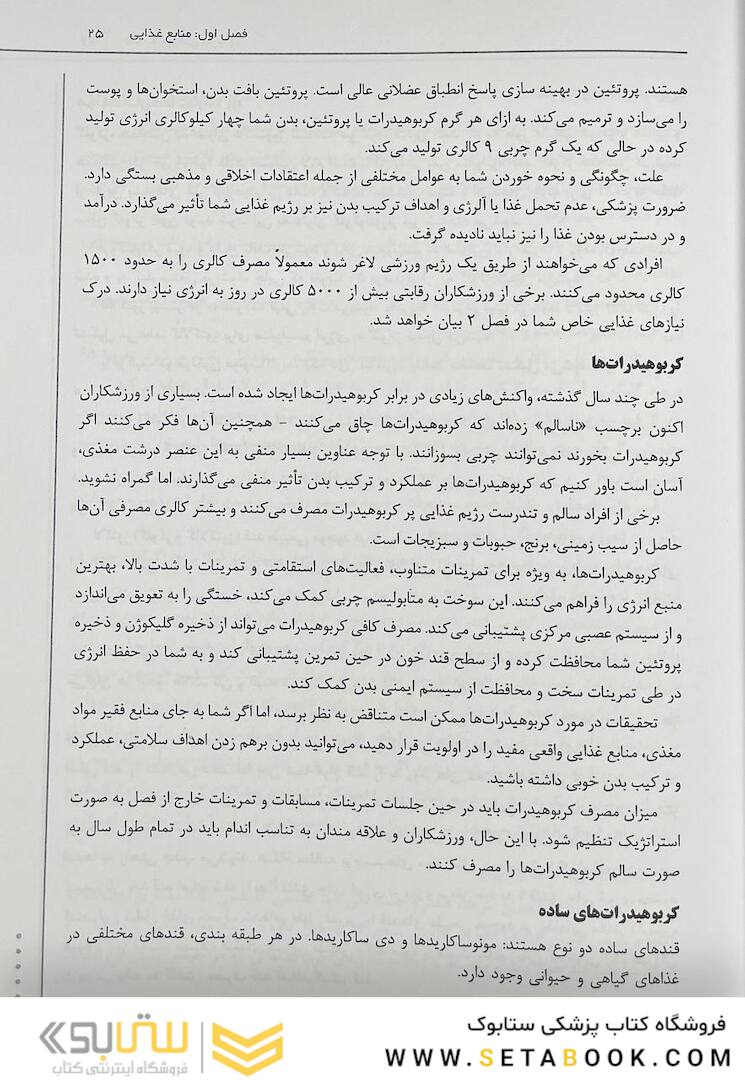 فصل اول: منابع غذایی ۲۵
هستند. پروتئین در بهینه سازی پاسخ انطباق عضلانی عالی است. پروتئین بافت بدن، استخوان‌ها و پوست
را می‌سازد و ترمیم می‌کند. به ازای هر گرم کربوهیدرات یا پروتئین، بدن شما چهار کیلوکالری انرژی تولید
کرده در حالی که یک گرم چربی ۹ کالری تولید می‌کند.
علت، چگونگی و نحوه خوردن شما به عوامل مختلفی از جمله اعتقادات اخلاقی و مذهبی بستگی دارد.
ضرورت پزشکی، عدم تحمل غذا یا آلرژی و اهداف ترکیب بدن نیز بر رژیم غذایی شما تأثیر می‌گذارد. درآمد
و در دسترس بودن غذا را نیز نباید نادیده گرفت.
افرادی که می‌خواهند از طریق یک رژیم ورزشی لاغر شوند معمولاً مصرف کالری را به حدود ۱۵۰۰
کالری محدود می‌کنند. برخی از ورزشکاران رقابتی بیش از ۵۰۰۰ کالری در روز به انرژی نیاز دارند. درک
نیازهای غذایی خاص شما در فصل ۲ بیان خواهد شد.
کربوهیدرات‌ها
در طی چند سال گذشته، واکنش‌های زیادی در برابر کربوهیدرات‌ها ایجاد شده است. بسیاری از ورزشکاران
اکنون برچسب «ناسالم» زده‌اند که کربوهیدرات‌ها چاق می‌کنند – همچنین آن‌ها فکر می‌کنند اگر
کربوهیدرات بخورند نمی‌توانند چربی بسوزانند. با توجه عناوین بسیار منفی به این عنصر درشت مغذی،
آسان است باور کنیم که کربوهیدرات‌ها بر عملکرد و ترکیب بدن تأثیر منفی می‌گذارند. اما گمراه نشوید.
برخی از افراد سالم و تندرست رژیم غذایی پر کربوهیدرات مصرف می‌کنند و بیشتر کالری مصرفی آن‌ها
حاصل از سیب زمینی، برنج، حبوبات و سبزیجات است.
کربوهیدرات‌ها، به ویژه برای تمرینات متناوب، فعالیت‌های استقامتی و تمرینات با شدت بالا، بهترین
منبع انرژی را فراهم می‌کنند. این سوخت به متابولیسم چربی کمک می‌کند، خستگی را به تعویق می‌اندازد
و از سیستم عصبی مرکزی پشتیبانی می‌کند. مصرف کافی کربوهیدرات می‌تواند از ذخیره گلیکوژن و ذخیره
پروتئین شما محافظت کرده و از سطح قند خون در حین تمرین پشتیبانی کند و به شما در حفظ انرژی
در طی تمرینات سخت و محافظت از سیستم ایمنی بدن کمک کند.
تحقیقات در مورد کربوهیدرات‌ها ممکن است متناقض به نظر برسد، اما اگر شما به جای منابع فقیر مواد
مغذی، منابع غذایی واقعی مفید را در اولویت قرار دهید، می‌توانید بدون برهم زدن اهداف سلامتی، عملکرد
و ترکیب بدن خوبی داشته باشید.
میزان مصرف کربوهیدرات باید در حین جلسات تمرینات، مسابقات و تمرینات خارج از فصل به صورت
استراتژیک تنظیم شود. با این حال، ورزشکاران و علاقه مندان به تناسب اندام باید در تمام طول سال به
صورت سالم کربوهیدرات‌ها را مصرف کنند.
کربوهیدرات‌های ساده
قندهای ساده دو نوع هستند: مونوساکاریدها و دی ساکاریدها. در هر طبقه بندی، قندهای مختلفی در
غذاهای گیاهی و حیوانی وجود دارد.
فروشگاه کتاب پزشکی ستابوک
WWW.SETABOOK.COM
ستابوک
فروشگاه اینترنتی کتاب